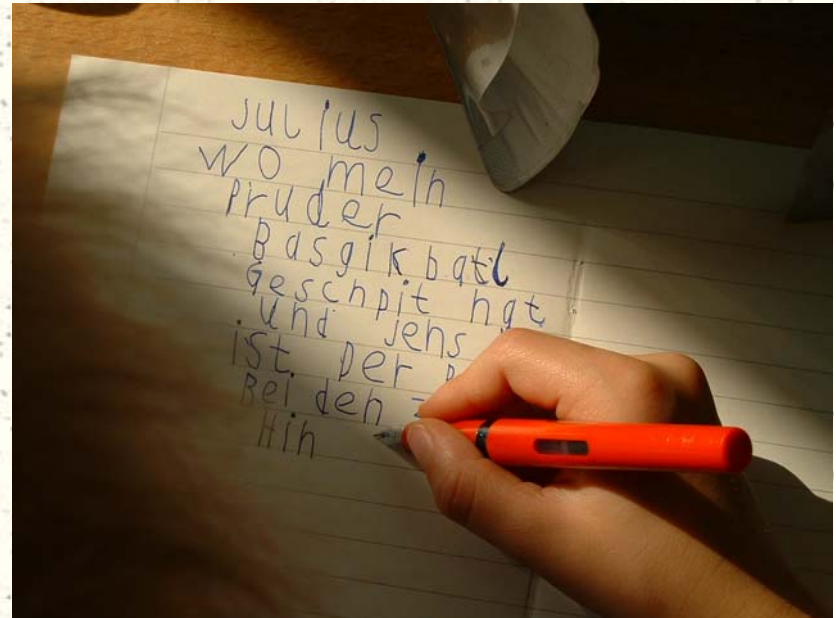 Julius
wo mein
Pruder
Basgikbatl
Geschpit hat
und jens
ist. Der
Bei den
Hin